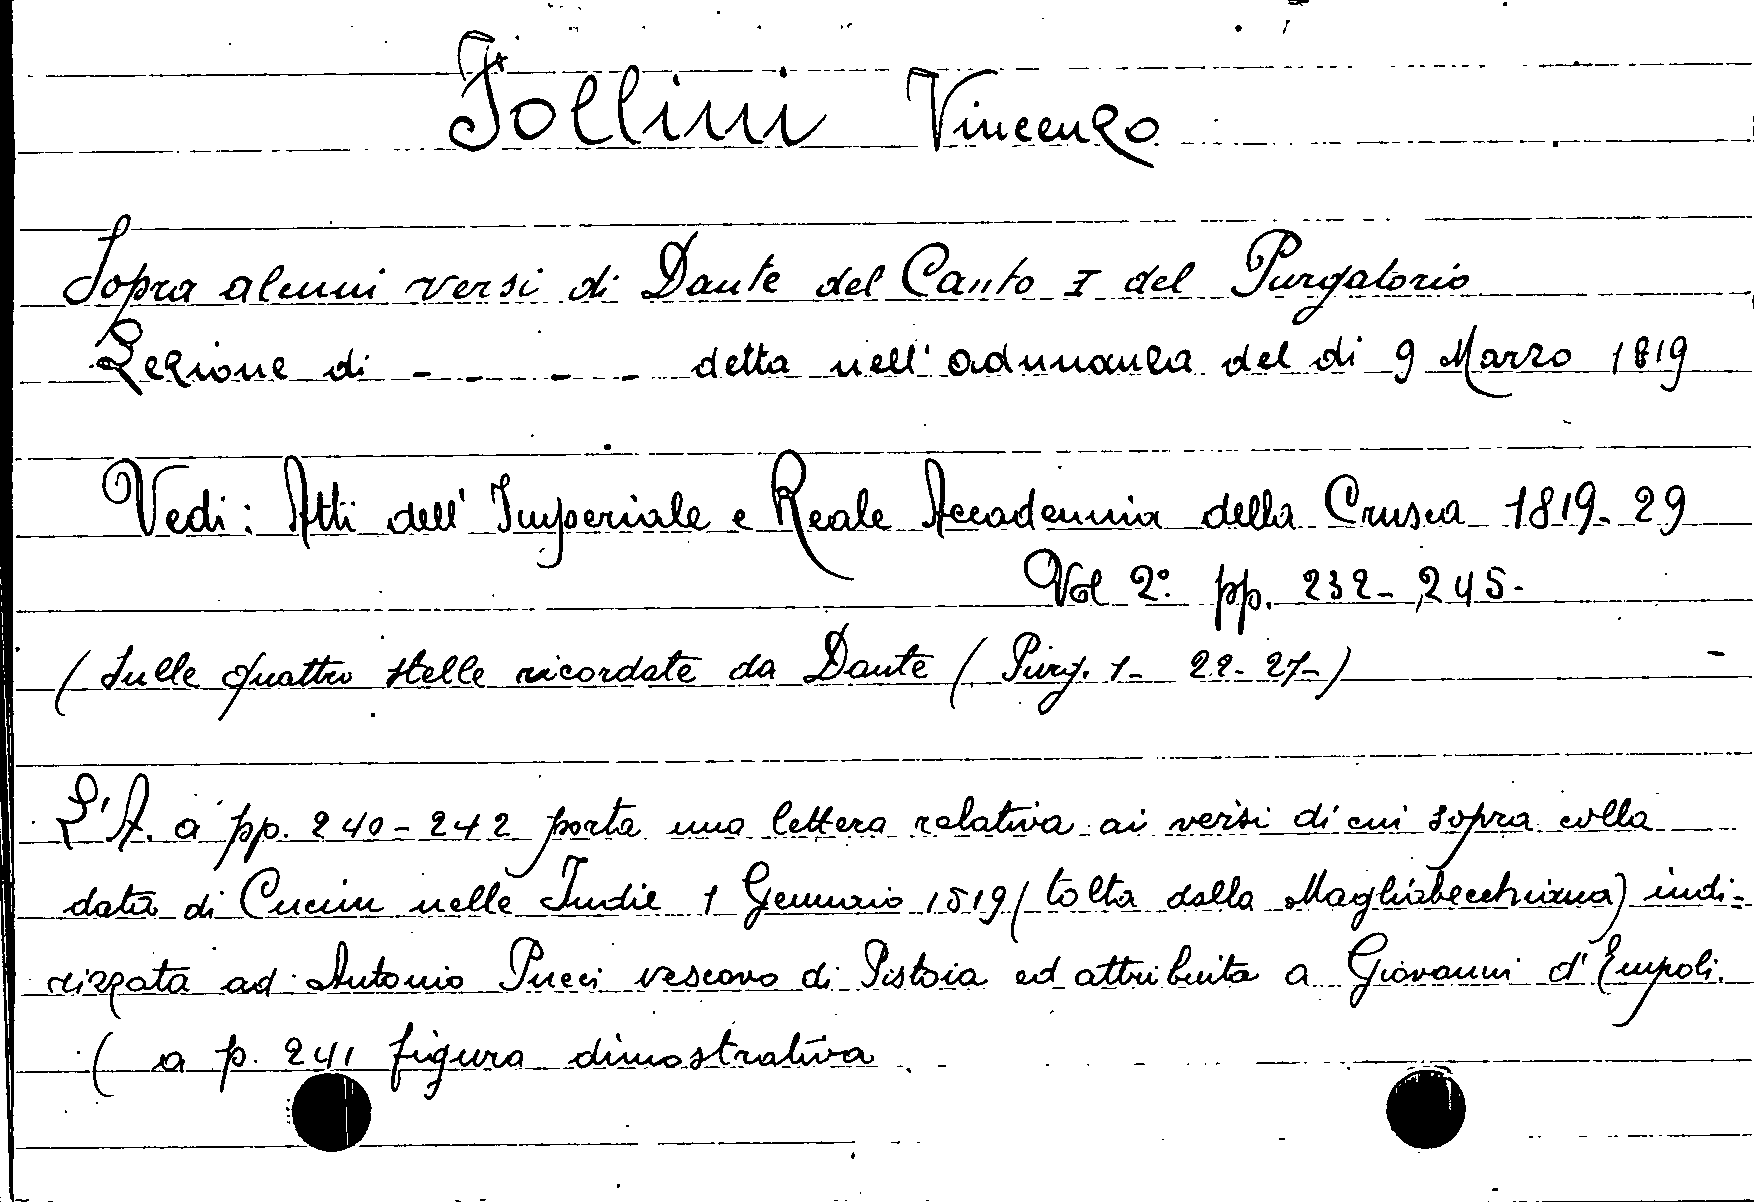 Follini Vincenzo
Sopra alcuni versi di Dante del Canto I del Purgatorio
Lezione di - - - - detta nell' adunanza del di 9 Marzo 1819
Vedi: Atti dell' Imperiale e Reale Accademia della Crusca 1819-29
Vol 2º pp. 232-245-
(Sulle quattro stelle ricordate da Dante (Purg. 1- 22-27-)
L'A. a pp. 240-242 porta una lettera relativa ai versi di cui sopra colla
data di Cucin nelle Indie 1 Gennaio 1519 (tolta dalla Magliabecchiana) indi=
rizzata ad Antonio Pucci vescovo di Pistoia ed attribuita a Giovanni d'Empoli.
( a p. 241 figura dimostrativa